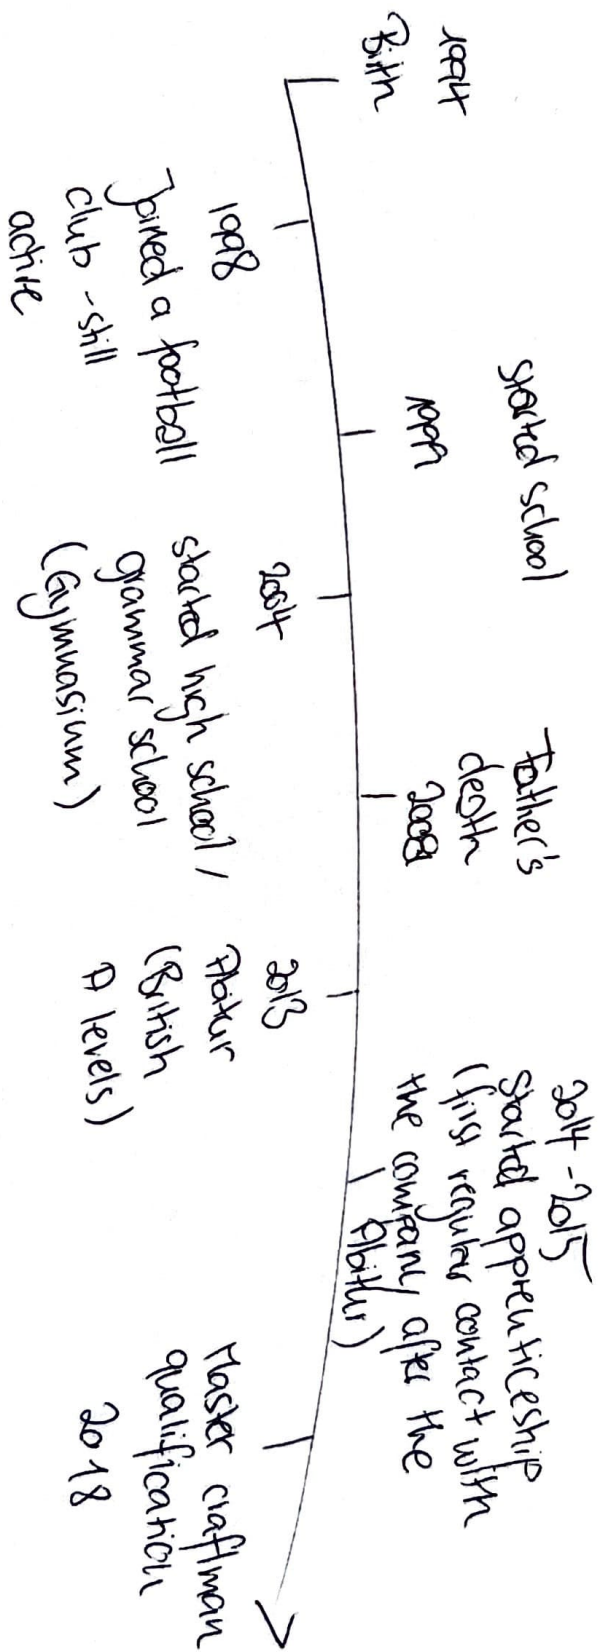 1994
Birth
1998
Joined a football
club - still
active
started school
1999
2004
started high school /
grammar school
(Gymnasium)
Father's
death
2008
2013
Abitur
(British
A levels)
2014 - 2015
Started apprenticeship
(first regular contact with
the company after the
Abitur)
Master craftman
qualification
2018